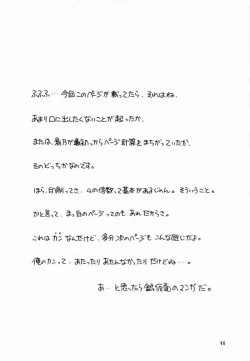 ふふふ… 今回このページが載ってたら、それはね、
あまり口に出したくないことが起ったか、
または、最乃が最初っからページ計算をまちがっていたか、
そのどっちかなのです。
ほら、印刷ってさ、4の倍数って基本があるじゃん。そういうこと。
かと言って、まっ白のページってのも あれだからさ。
これは カン なんだけど、多分次のページも こんな感じだよ。
俺のカンって、あたったり あたんなかったり だけどね…。
あ…と思ったら銀仮面のマンガだ。
46